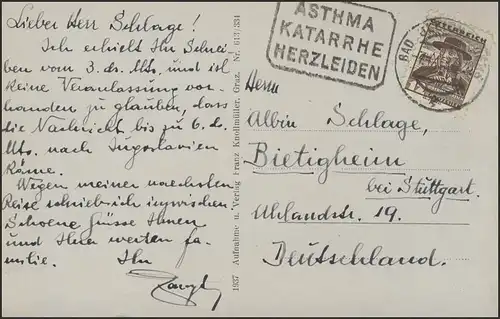 Lieber Herr Schlage!
Ich erhielt Ihr Schrei-
ben vom 3. ds. Mts. und ist
keine Veranlassung vor-
handen zu glauben, dass
die Nachricht bis zu 6. d.
Mts. nach Jugoslavien
käme.
Wegen meiner naechsten
Reise schrieb ich inzwischen
Schoene Grüsse Ihnen
und Ihrer werten Fa-
milie. Ihr
1937 Aufnahme u. Verlag Franz Knollmüller, Graz. Nr. 613/334
ASTHMA
KATARRHE
HERZLEIDEN
BAD
ÖSTERREICH
Herrn
Albin Schlage,
Bietigheim
bei Stuttgart.
Uhlandstr. 19.
Deutschland.